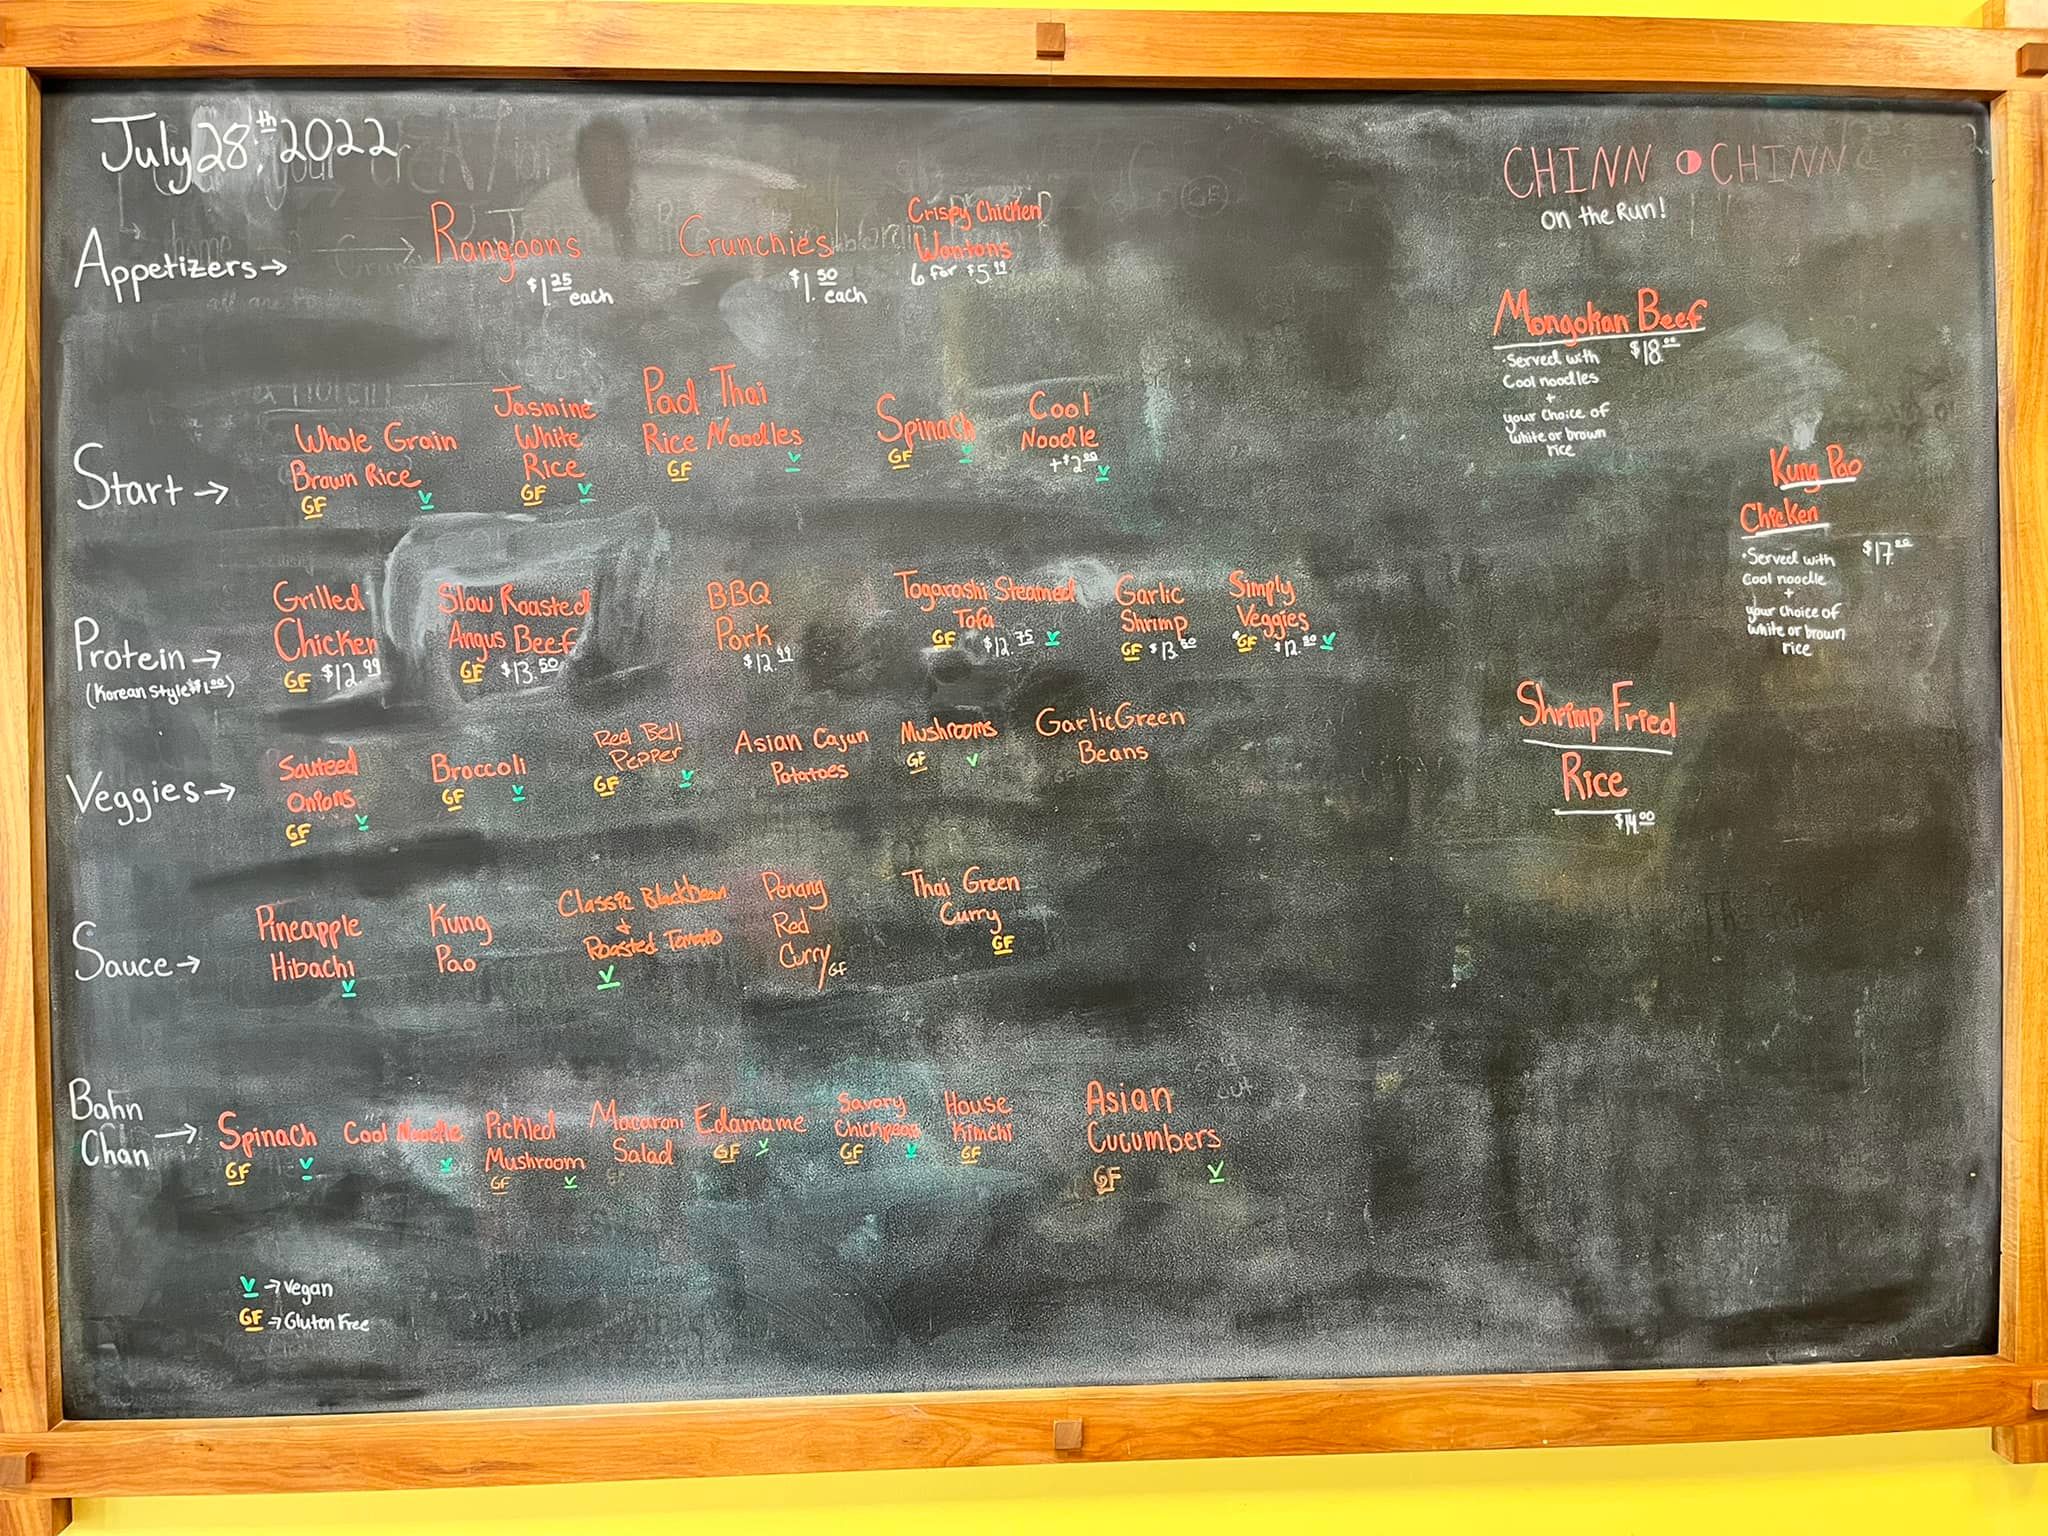 July 28th, 2022
Appetizers →
Rangoons
$1.25 each
Crunchies
$1.50
each
Crispy Chicken
Wontons
6 for $5.99
Start →
Whole Grain
Brown Rice
GF V
Jasmine
White
Rice
GF V
Pad Thai
Rice Noodles
GF V
Spinach
GF V
Cool
Noodle
+$2.00
V
Protein →
(Korean Style $1.00)
Grilled
Chicken
GF $12.99
Slow Roasted
Angus Beef
GF $13.50
BBQ
Pork
$12.99
Togarashi Steamed
Tofu
GF $12.75 V
Garlic
Shrimp
GF $13.50
Simply
Veggies
GF $12.50 V
Veggies →
Sauteed
Onions
GF V
Broccoli
GF V
Red Bell
Pepper
GF V
Asian Cajun
Potatoes
Mushrooms
GF V
Garlic Green
Beans
Sauce →
Pineapple
Hibachi
V
Kung
Pao
Classic Blackbean
+
Roasted Tomato
V
Penang
Red
Curry
GF
Thai Green
Curry
GF
Bahn
Chan →
Spinach
GF V
Cool Noodle
V
Pickled
Mushroom
GF V
Macaroni
Salad
Edamame
GF V
Savory
Chickpeas
GF V
House
Kimchi
GF
Asian
Cucumbers
GF V
V → Vegan
GF → Gluten Free
CHINN CHINN
on the Run!
Mongolian Beef
$18.00
·Served with
Cool noodles
+
your choice of
white or brown
rice
Kung Pao
Chicken
$17.00
·Served with
Cool noodle
+
your choice of
white or brown
rice
Shrimp Fried
Rice
$14.00